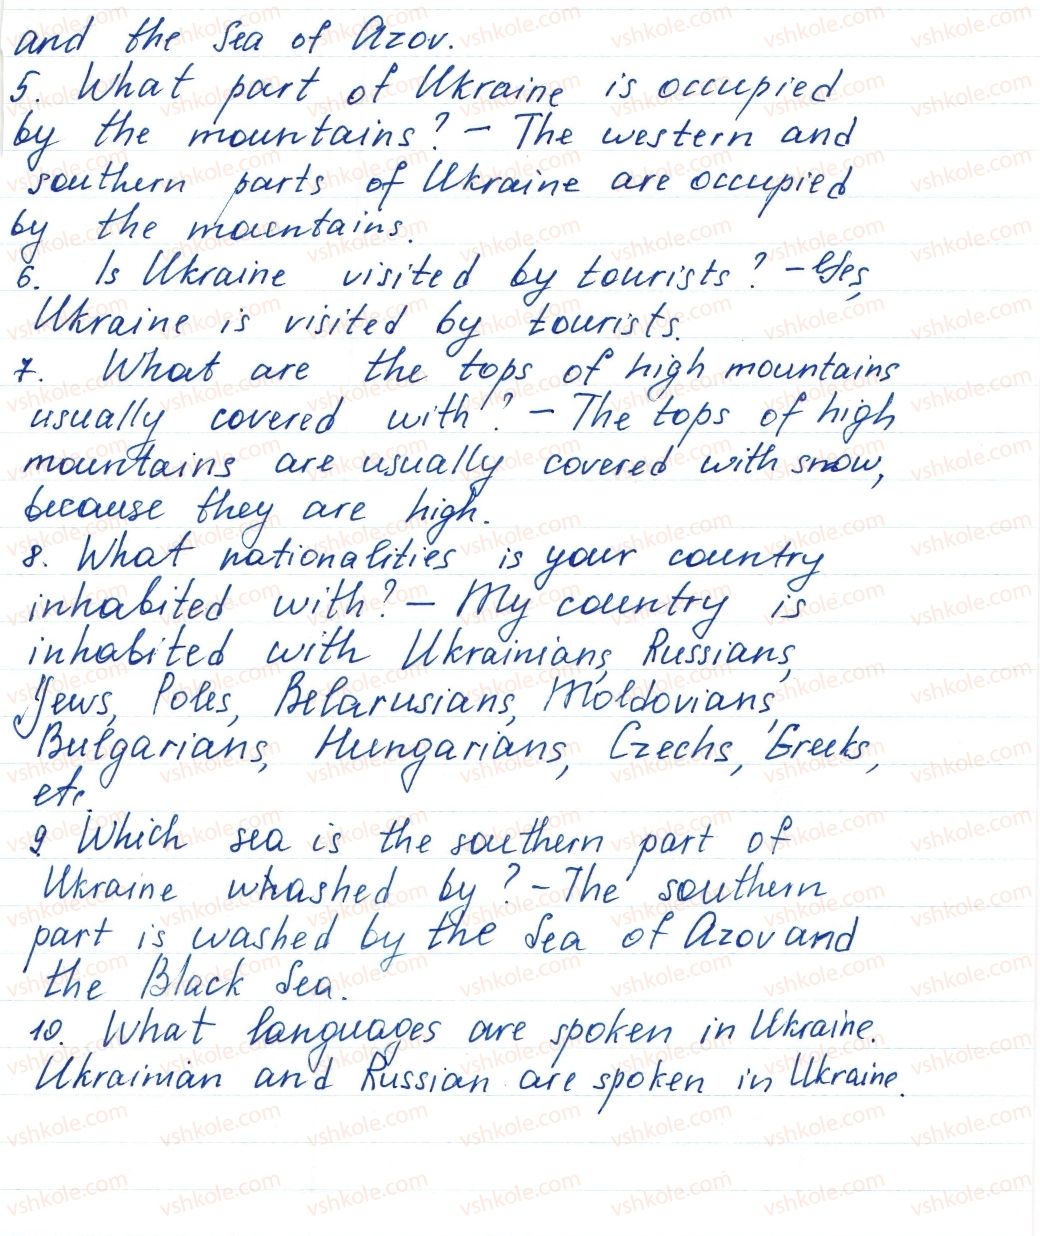 and the Sea of Azov.
5. What part of Ukraine is occupied
by the mountains? – The western and
southern parts of Ukraine are occupied
by the mountains.
6. Is Ukraine visited by tourists? – Yes,
Ukraine is visited by tourists.
7. What are the tops of high mountains
usually covered with? – The tops of high
mountains are usually covered with snow,
because they are high.
8. What nationalities is your country
inhabited with? – My country is
inhabited with Ukrainians, Russians,
Jews, Poles, Belarusians, Moldovians,
Bulgarians, Hungarians, Czechs, Greeks,
etc.
9. Which sea is the southern part of
Ukraine whashed by? – The southern
part is washed by the Sea of Azov and
the Black Sea.
10. What languages are spoken in Ukraine.
Ukrainian and Russian are spoken in Ukraine.
vshkole.com